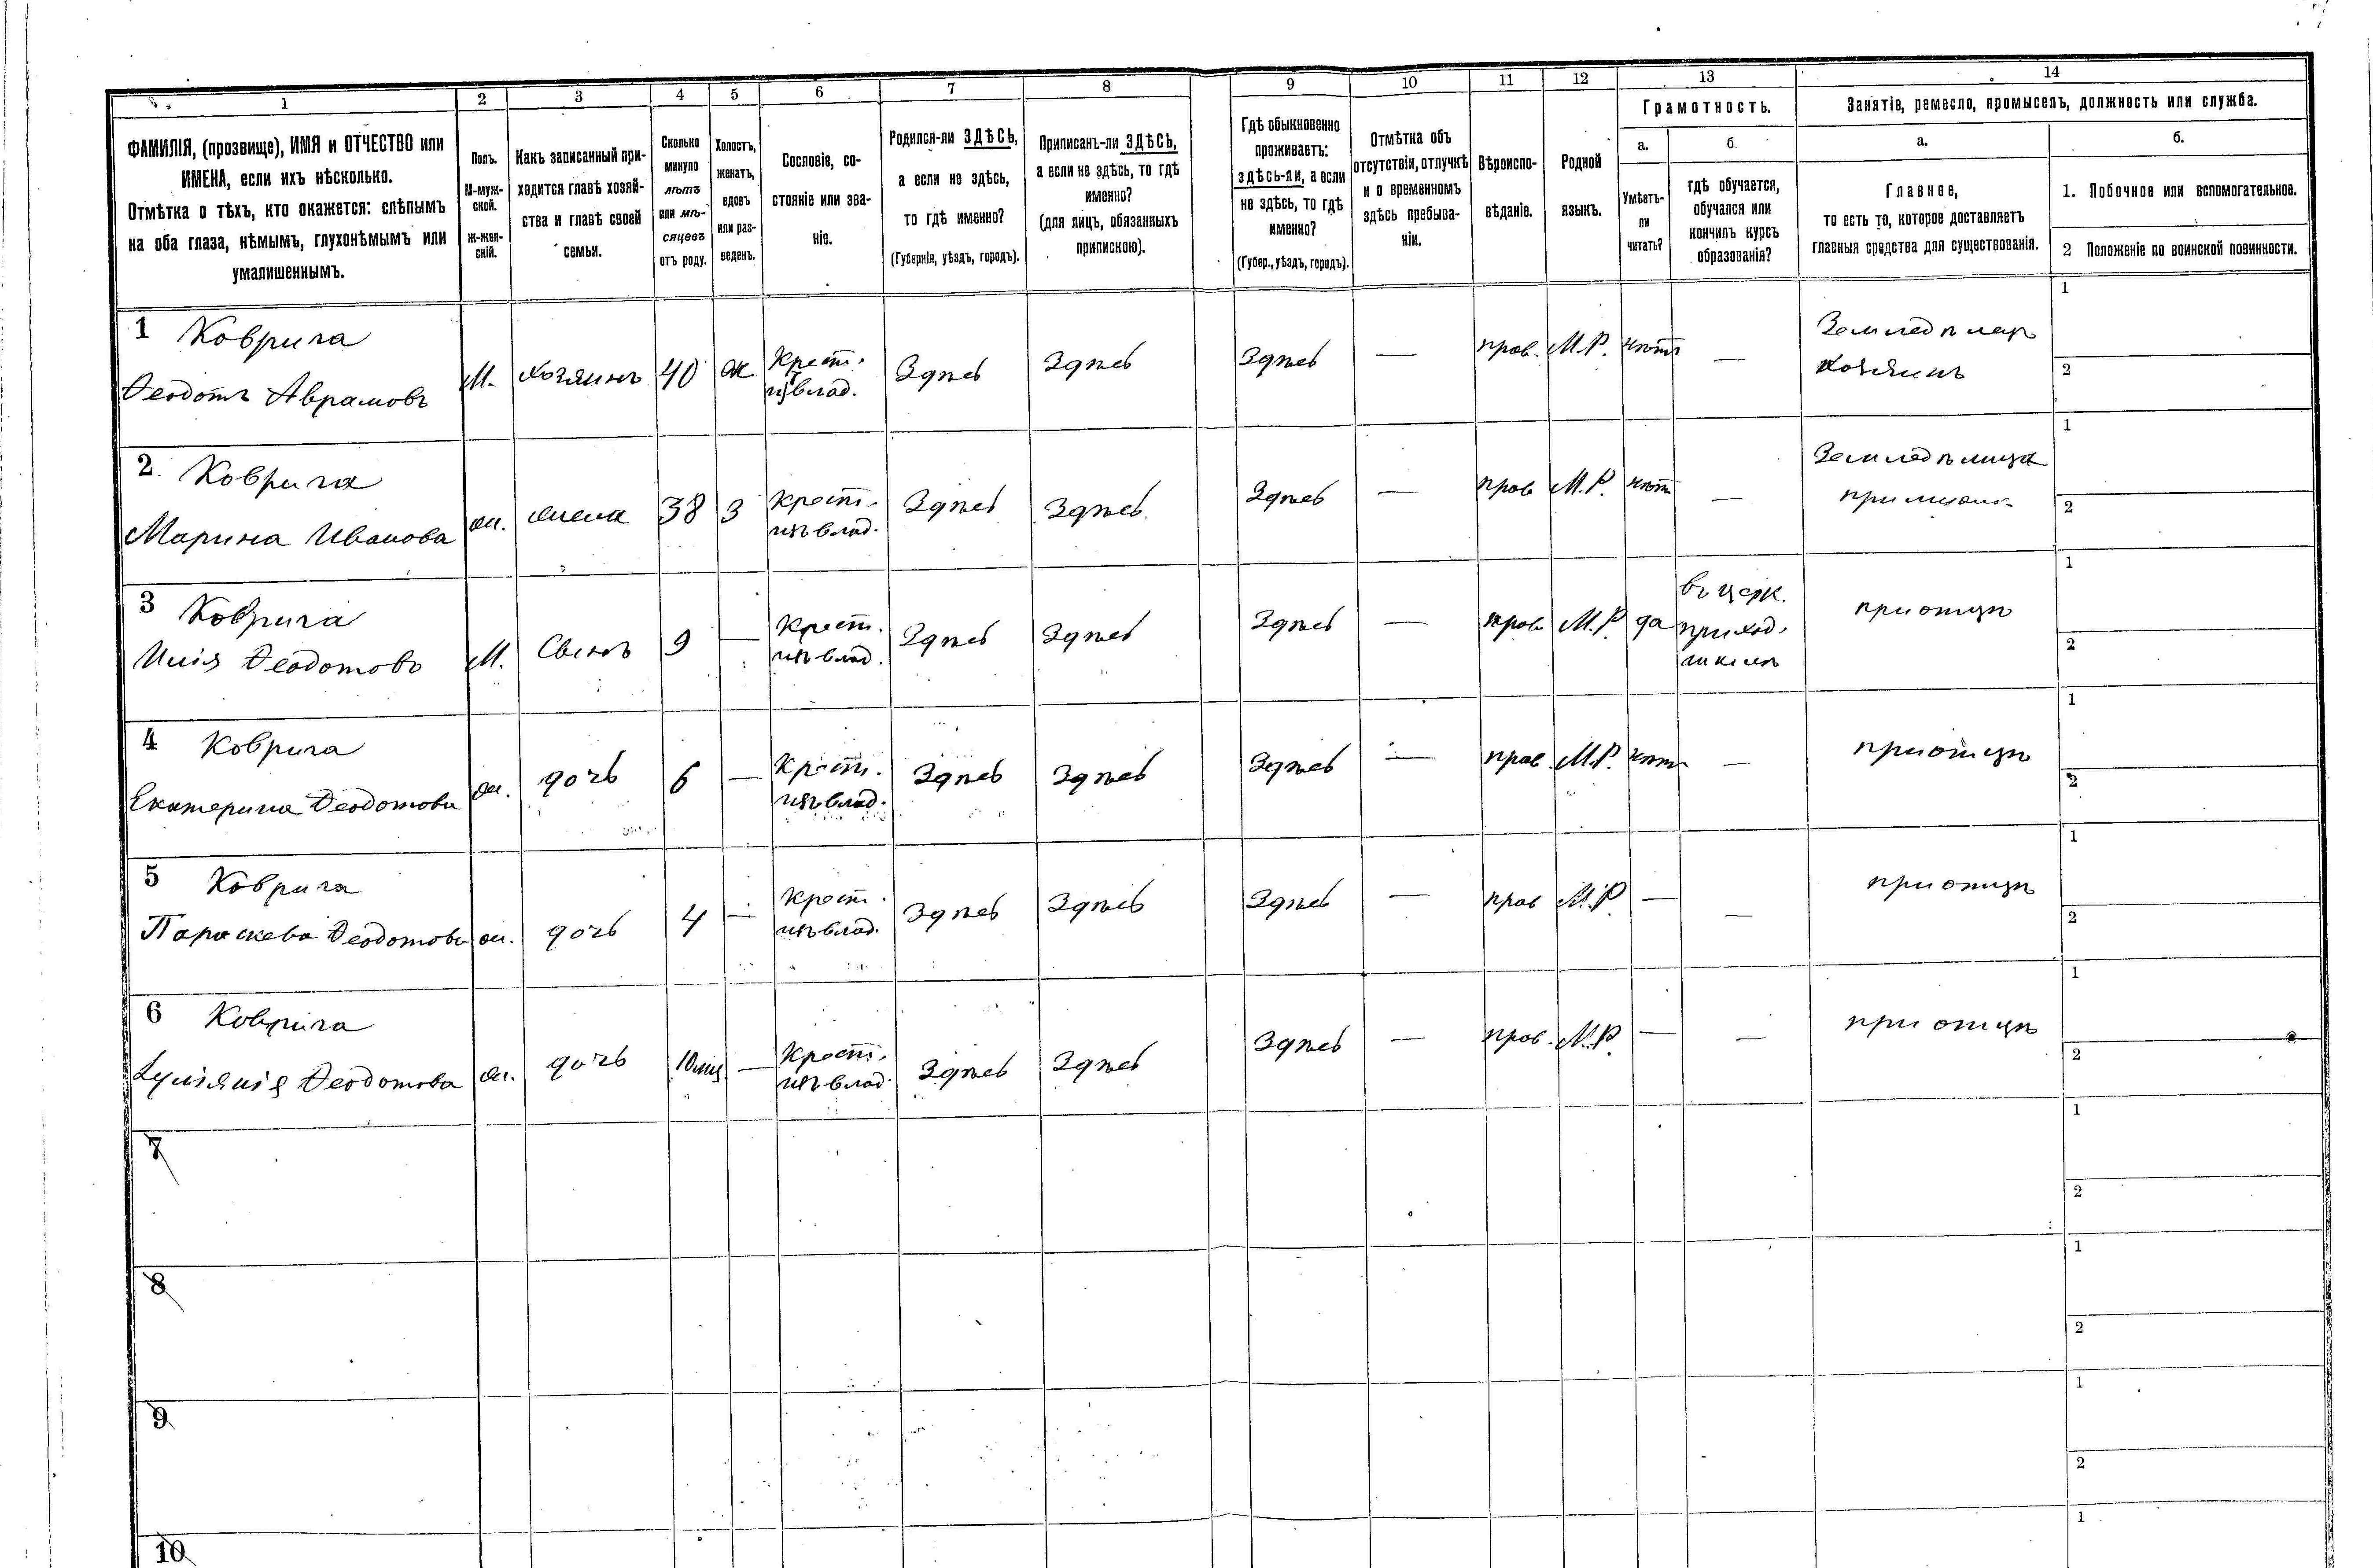 1 2 3 4 5 6 7 8 9 10 11 12 13 14
ФАМИЛІЯ, (прозвище), ИМЯ и ОТЧЕСТВО или
ИМЕНА, если ихъ нѣсколько.
Отмѣтка о тѣхъ, кто окажется: слѣпымъ
на оба глаза, нѣмымъ, глухонѣмымъ или
умалишеннымъ.
Полъ.
М-муж-
ской.
Ж-жен-
скій.
Какъ записанный при-
ходится главѣ хозяй-
ства и главѣ своей
семьи.
Сколько
минуло
лѣтъ
или мѣ-
сяцевъ
отъ роду.
Холостъ,
женатъ,
вдовъ
или раз-
веденъ.
Сословіе, со-
стояніе или зва-
ніе.
Родился-ли ЗДѢСЬ,
а если не здѣсь,
то гдѣ именно?
(Губернія, уѣздъ, городъ).
Приписанъ-ли ЗДѢСЬ,
а если не здѣсь, то гдѣ
именно?
(для лицъ, обязанныхъ
припискою).
Гдѣ обыкновенно
проживаетъ:
здѣсь-ли, а если
не здѣсь, то гдѣ
именно?
(Губер., уѣздъ, городъ).
Отмѣтка объ
отсутствіи, отлучкѣ
и о временномъ
здѣсь пребыва-
ніи.
Вѣроиспо-
вѣданіе.
Родной
языкъ.
Грамотность.
а.
Умѣетъ-
ли
читать?
б.
гдѣ обучается,
обучался или
кончилъ курсъ
образованія?
Занятіе, ремесло, промыселъ, должность или служба.
а.
Главное,
то есть то, которое доставляетъ
главныя средства для существованія.
б.
1. Побочное или вспомогательное.
2 Положеніе по воинской повинности.
1 Коврига
Ѳеодотъ Аврамовъ
М. хозяинъ 40 ж Крест.
изъ влад.
Здѣсь Здѣсь Здѣсь — прав. М.Р. нѣтъ —
Земледѣлец
хозяинъ
1
2
2 Коврига
Марина Иванова
ж. жена 38 З Крест.
изъ влад.
Здѣсь Здѣсь Здѣсь — прав М.Р. нѣт —
Земледѣлица
при
1
2
3 Коврига
Илія Ѳеодотовъ
М. Сынъ 9 — Крест.
изъ влад.
Здѣсь Здѣсь Здѣсь — прав М.Р. да
въ церк.
приход.
школѣ
при отцѣ
1
2
4 Коврига
Екатерина Ѳеодотова
ж. дочь 6 — Крест.
изъ влад.
Здѣсь Здѣсь Здѣсь — прав. М.Р. нѣтъ —
при отцѣ
1
2
5 Коврига
Параскева Ѳеодотова
ж. дочь 4 — Крест.
изъ влад.
Здѣсь Здѣсь Здѣсь — прав М.Р. — —
при отцѣ
1
2
6 Коврига
Ѳеодотова
ж. дочь 10 мц — Крест.
изъ влад.
Здѣсь Здѣсь Здѣсь — прав. М.Р. — —
при отцѣ
1
2
7
1
2
8
1
2
9
1
2
10
1